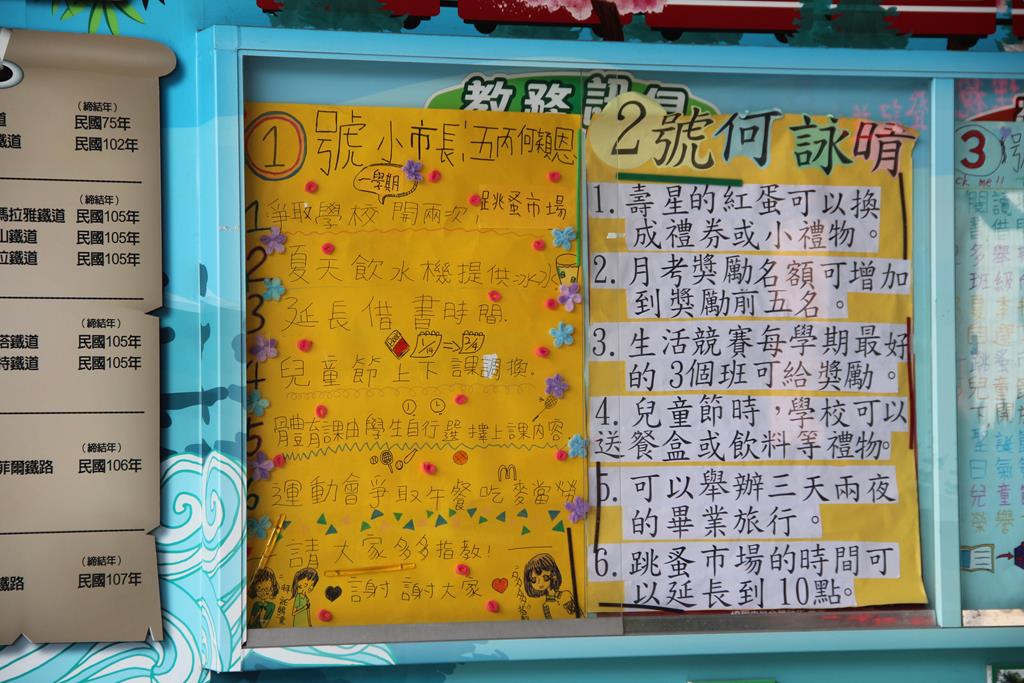 (締結年)
道 民國75年
鐵道 民國102年
(締結年)
馬拉雅鐵道 民國105年
山鐵道 民國105年
拉鐵道 民國105年
(締結年)
塔鐵道 民國105年
特鐵道 民國105年
(締結年)
菲爾鐵路 民國106年
(締結年)
鐵路 民國107年
教務訊息
1號小市長:五丙何穎恩
一學期
1 爭取學校開兩次 跳蚤市場
2 夏天飲水機提供冰水
3 延長借書時間.
1/14 => 2/4
4 兒童節上下課調換.
5 體育課由學生自行選擇上課內容
6 運動會爭取午餐吃麥當勞
請大家多多指教!
謝謝大家
2號何詠晴
1. 壽星的紅蛋可以換
成禮券或小禮物。
2. 月考獎勵名額可增加
到獎勵前五名。
3. 生活競賽每學期最好
的3個班可給獎勵。
4. 兒童節時，學校可以
送餐盒或飲料等禮物。
5. 可以舉辦三天兩夜
的畢業旅行。
6. 跳蚤市場的時間可
以延長到10點。
3號